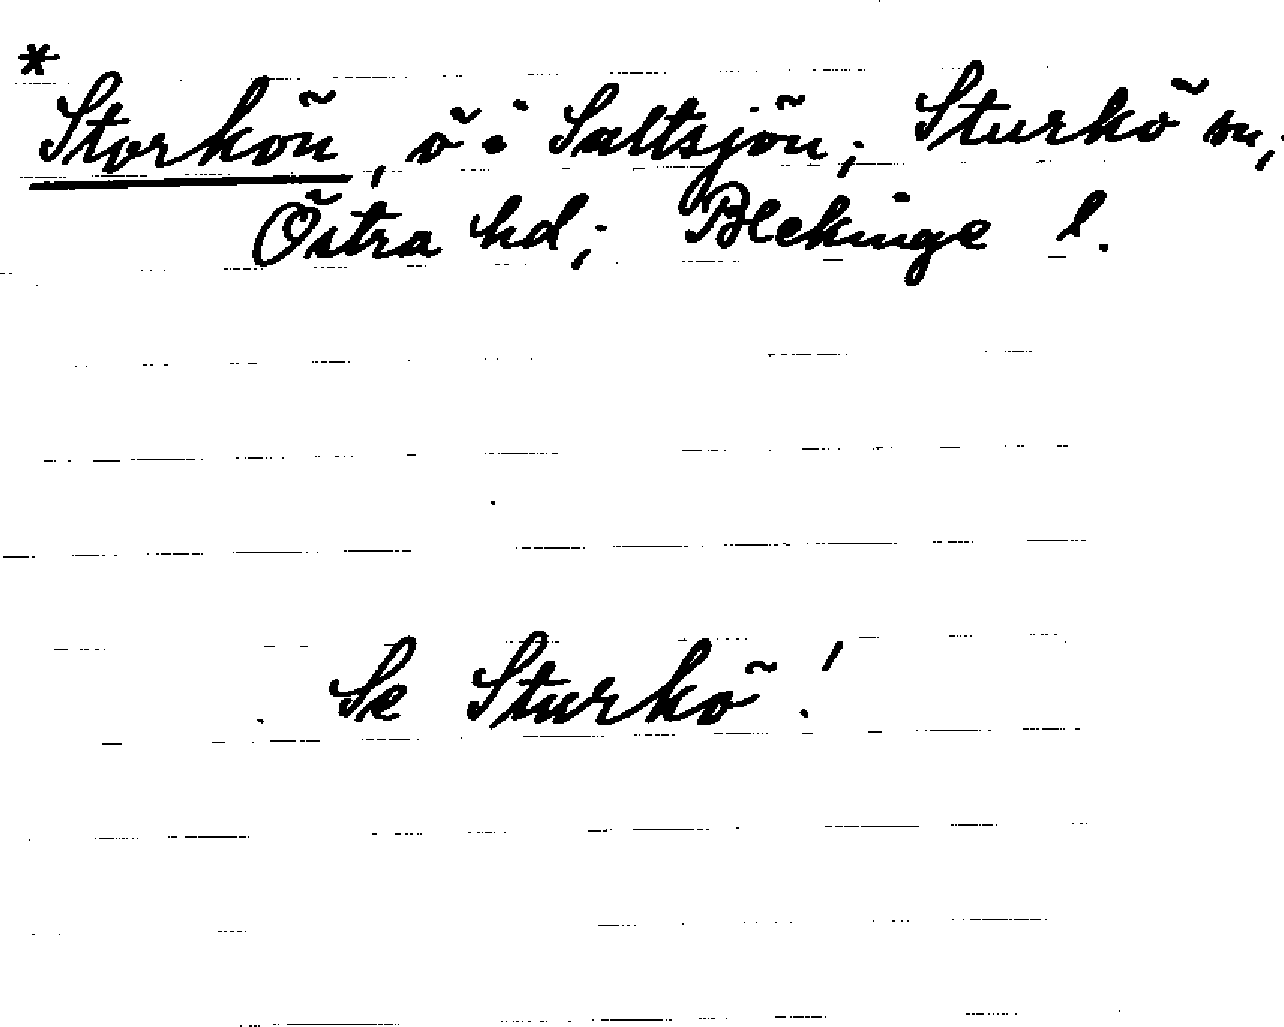 * Storkön, ö i Saltsjön; Sturkö sn,
Östra hd; Blekinge l.
Se Sturkö!